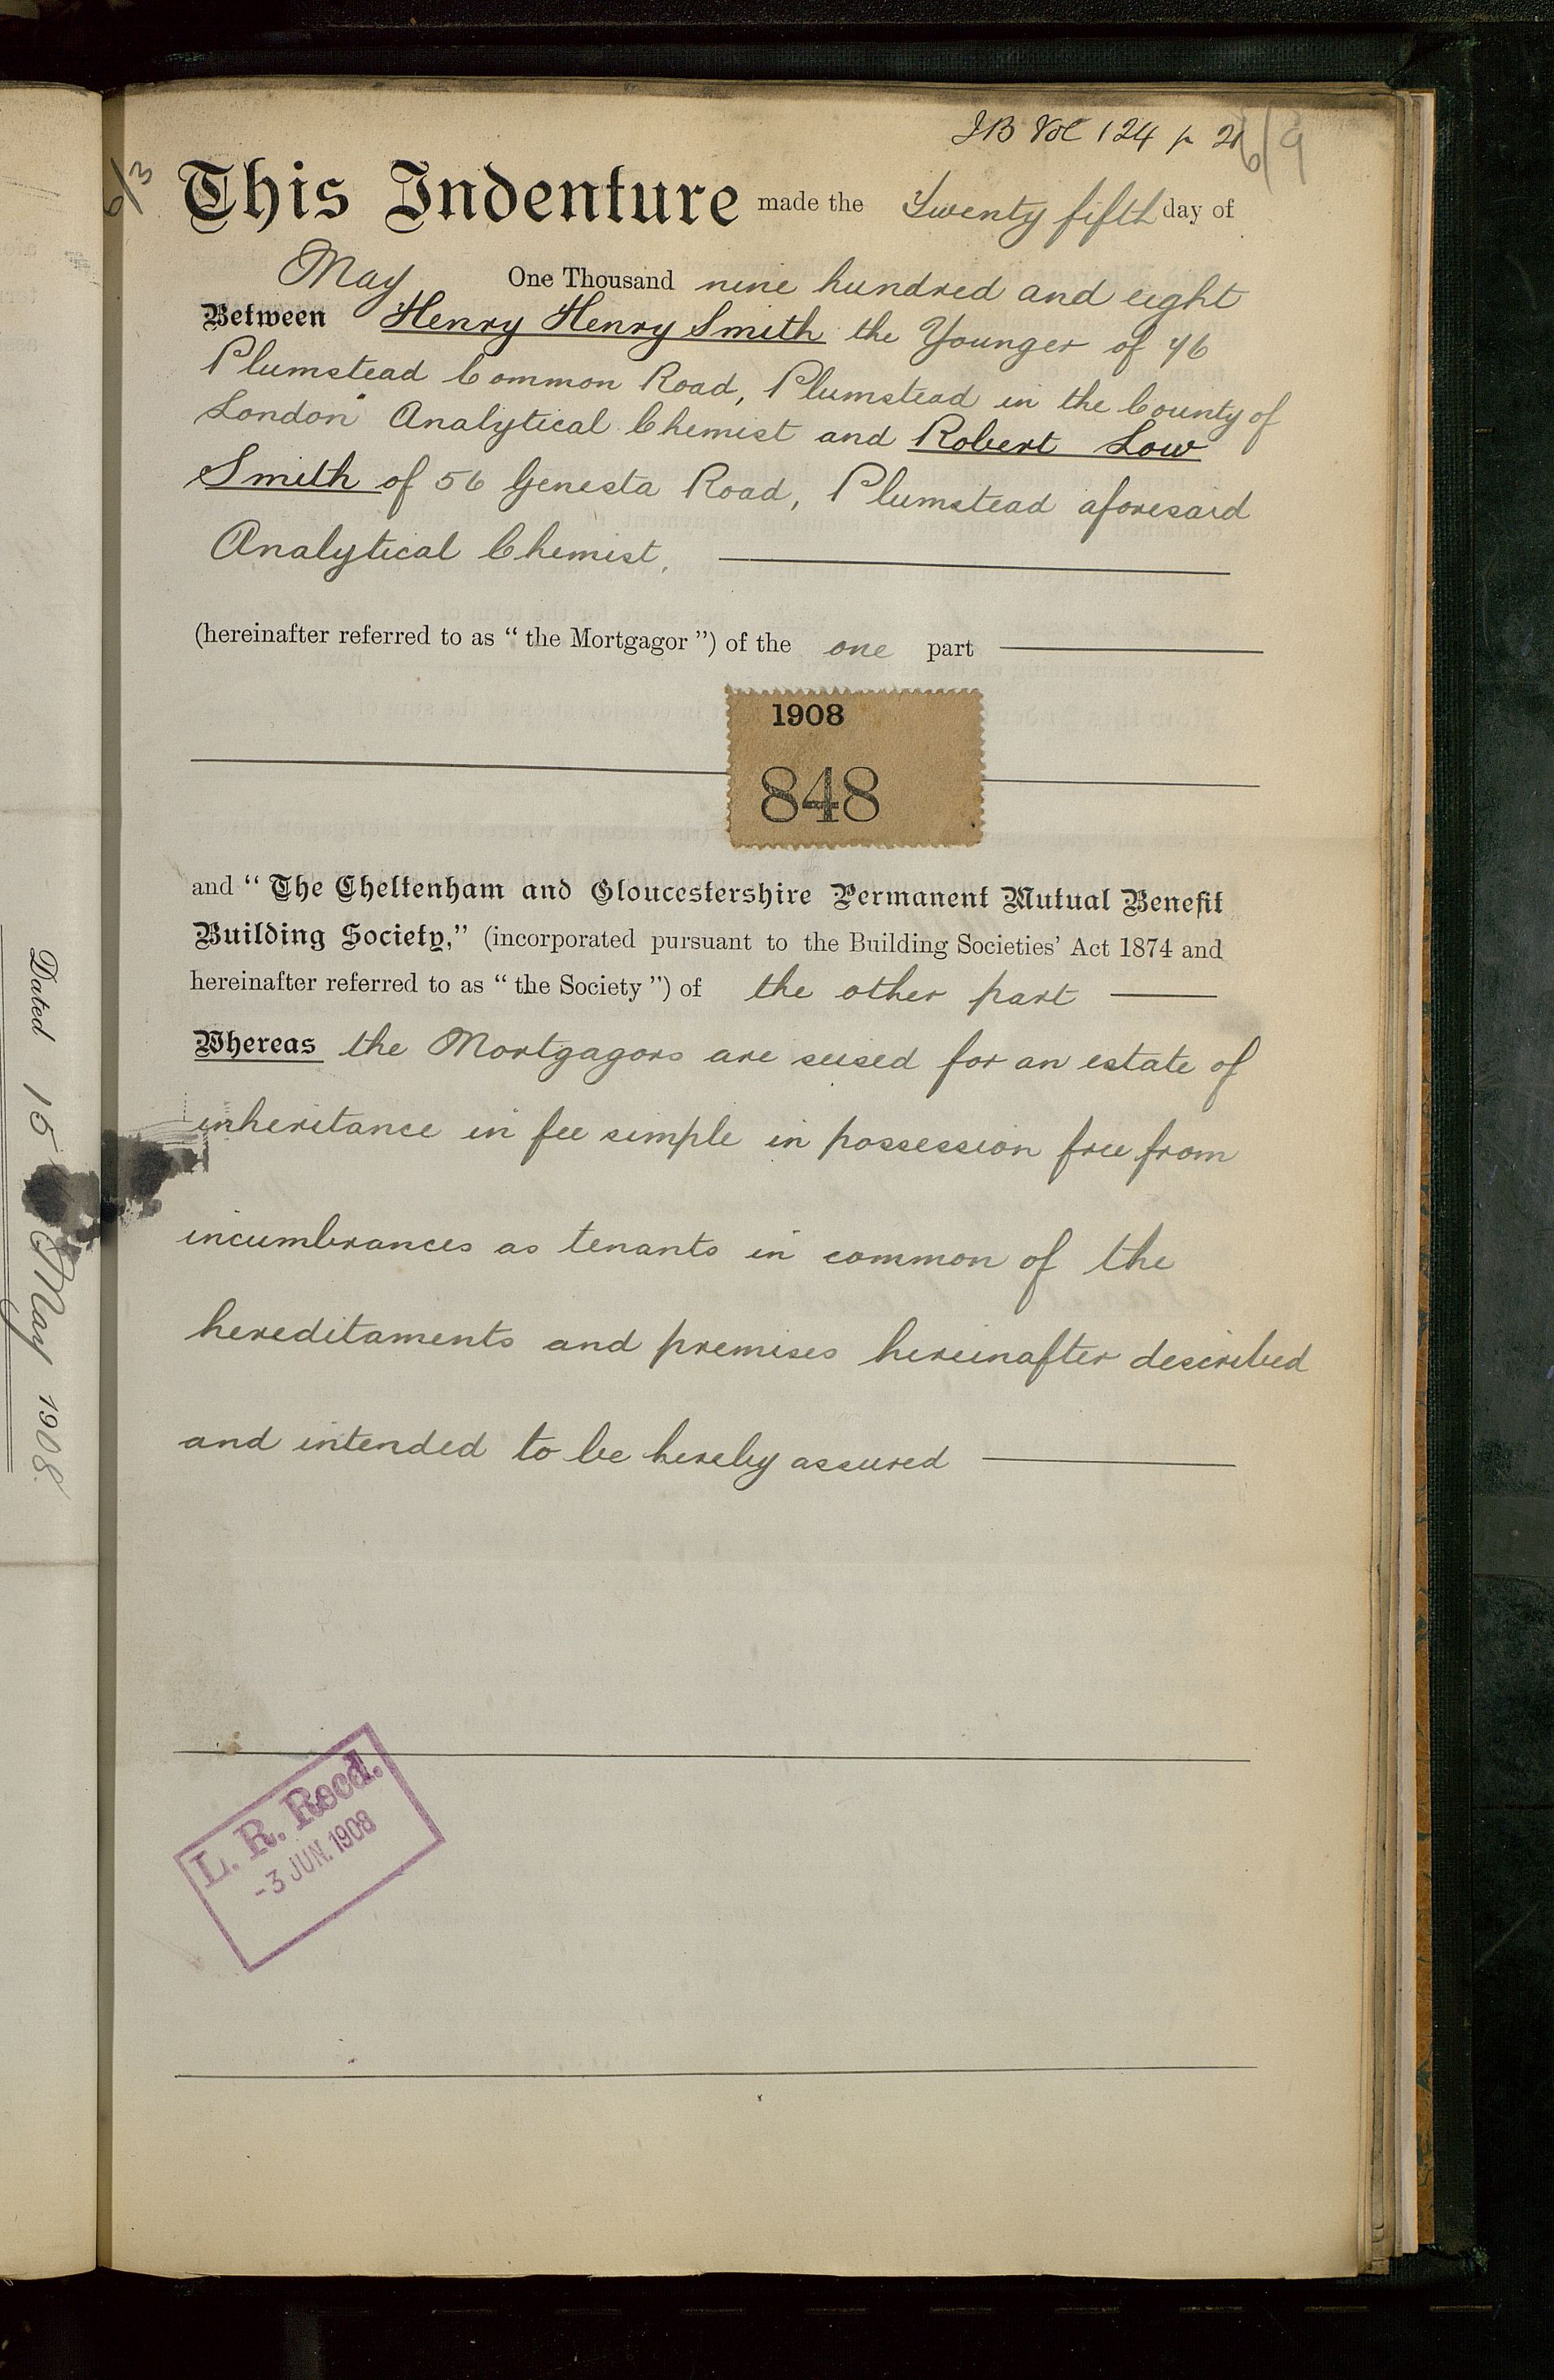 JB Vol 124 p 21
6/9
6/3
This Indenture made the Twenty fifth day of
May One Thousand nine hundred and eight
Between Henry Henry Smith the Younger of 46
Plumstead Common Road, Plumstead in the County of
London Analytical Chemist and Robert Low
Smith of 56 Genesta Road, Plumstead aforesaid
Analytical Chemist.
(hereinafter referred to as “ the Mortgagor ”) of the one part
1908
848
and “ The Cheltenham and Gloucestershire Permanent Mutual Benefit
Building Society,” (incorporated pursuant to the Building Societies’ Act 1874 and
hereinafter referred to as “ the Society ”) of the other part
Whereas the Mortgagors are seised for an estate of
inheritance in fee simple in possession free from
incumbrances as tenants in common of the
hereditaments and premises hereinafter described
and intended to be hereby assured
L. R. Recd.
-3 JUN. 1908
Dated 15 May 1908